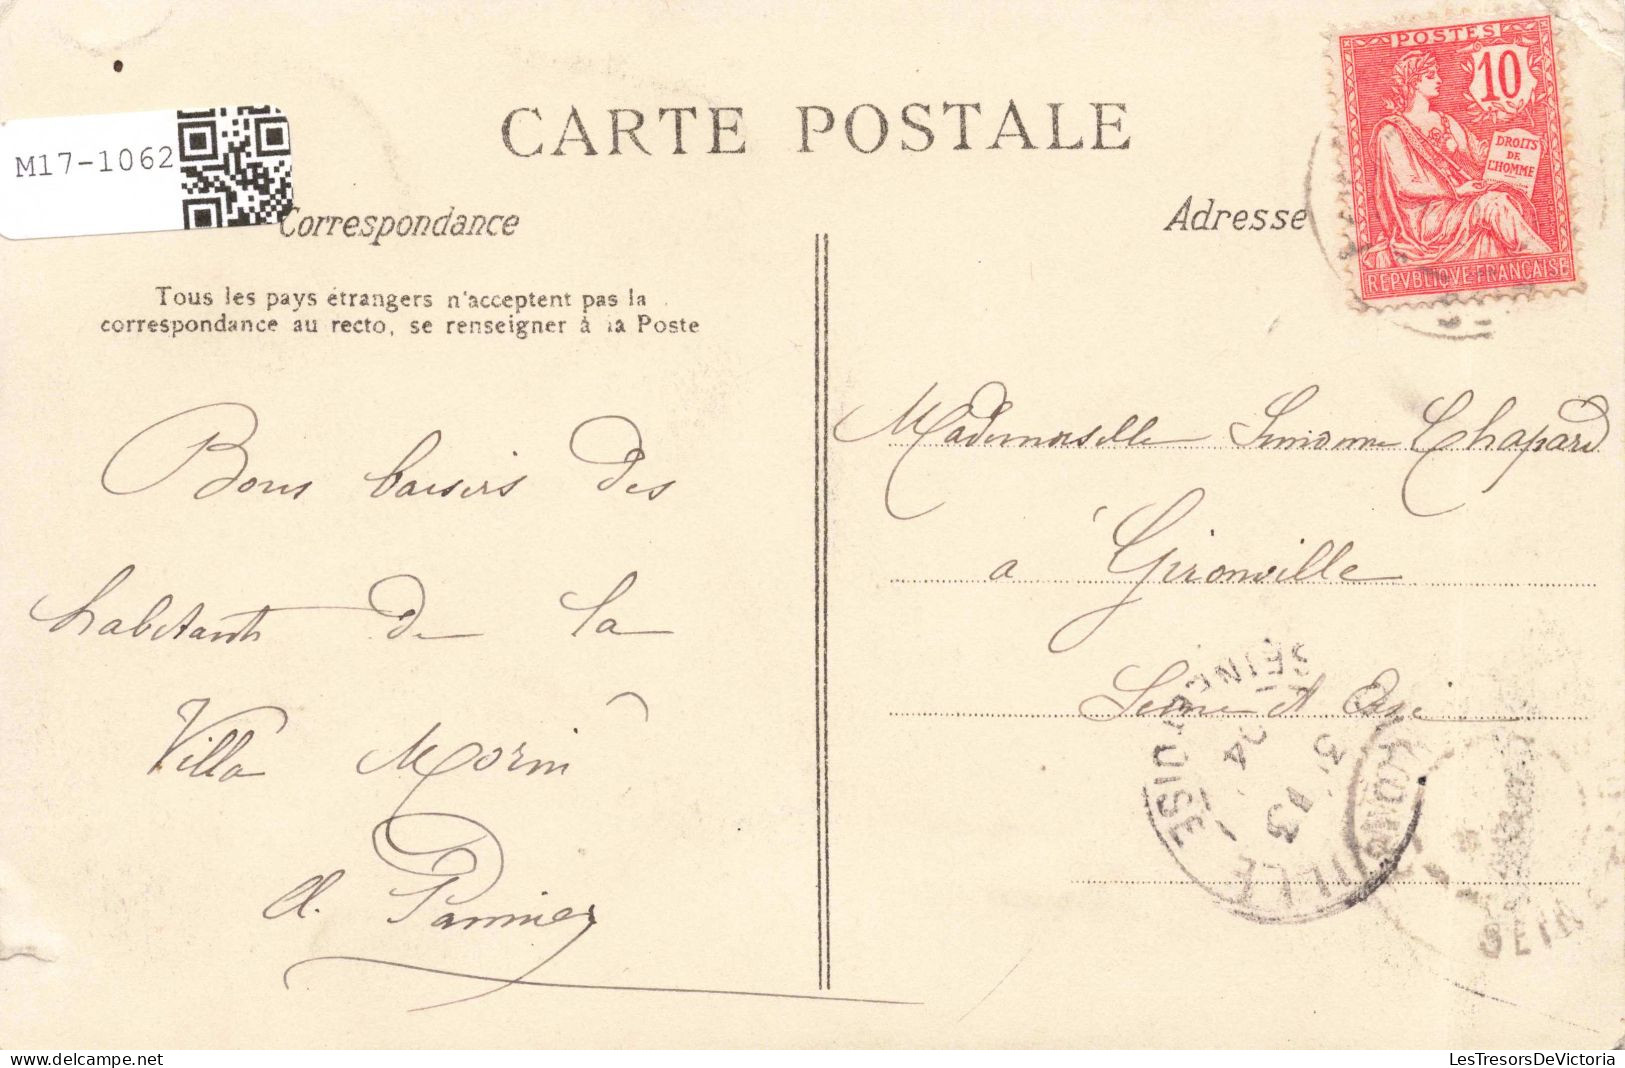 M17-1062
CARTE POSTALE
POSTES
10
DROITS
DE
L'HOMME
REPVBLIQVE FRANÇAISE
Correspondance
Adresse
Tous les pays étrangers n'acceptent pas la
correspondance au recto, se renseigner à la Poste
Bons baisers des
habitants de la
Villa Morin
A. Pannier
Mademoiselle Simonne Chapard
à Gironville
Seine et Oise
SEINE ET OISE
LesTresorsDeVictoria